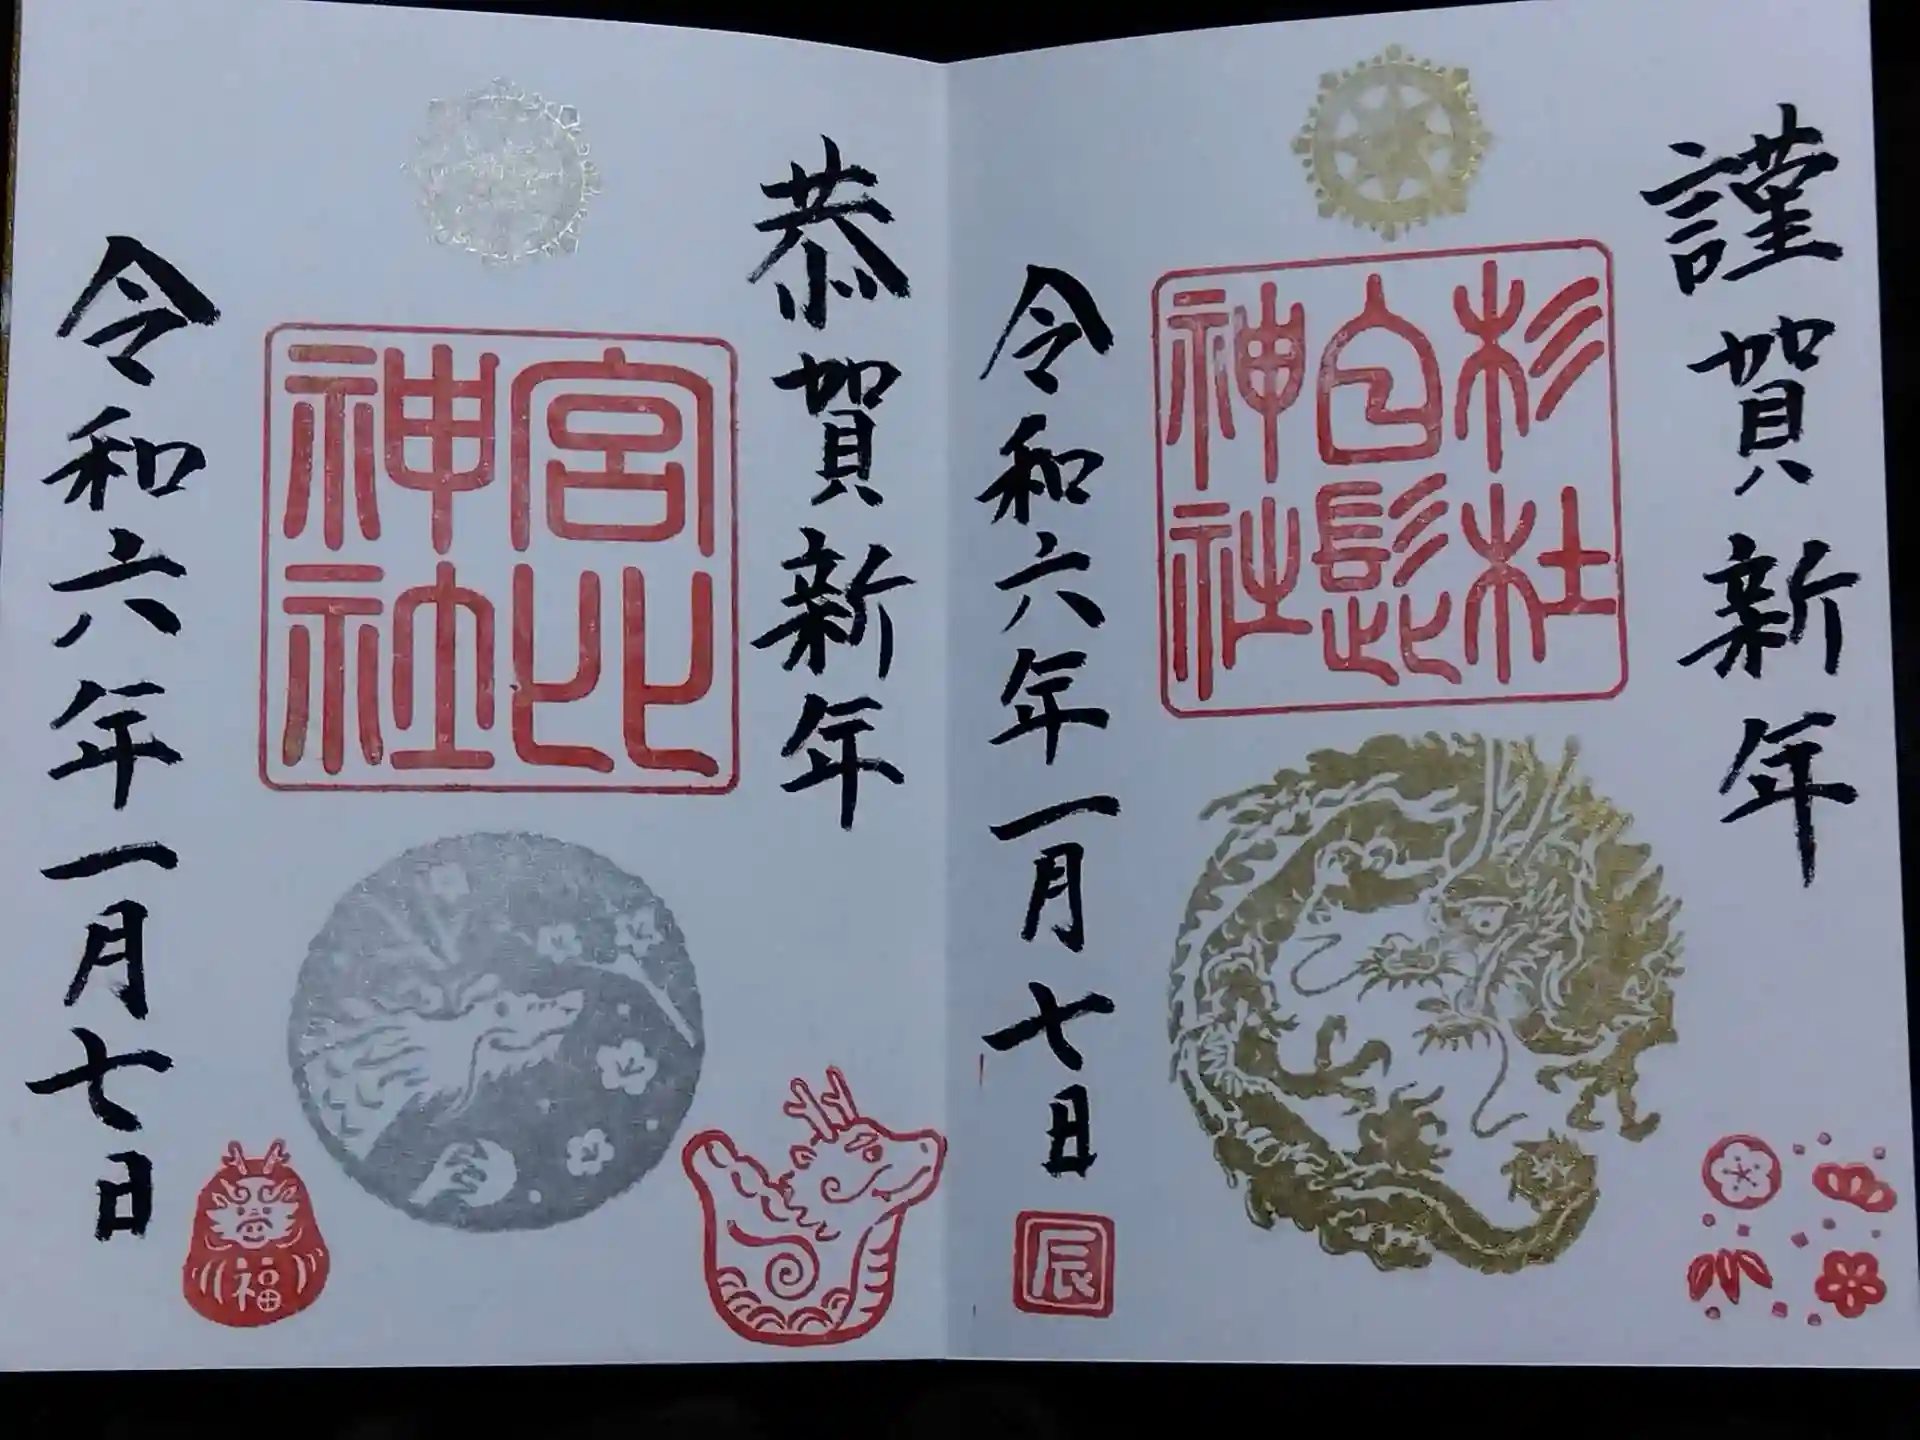 謹賀新年
杉杜
白髭
神社
令和六年一月七日
辰
恭賀新年
宮比
神社
令和六年一月七日
福